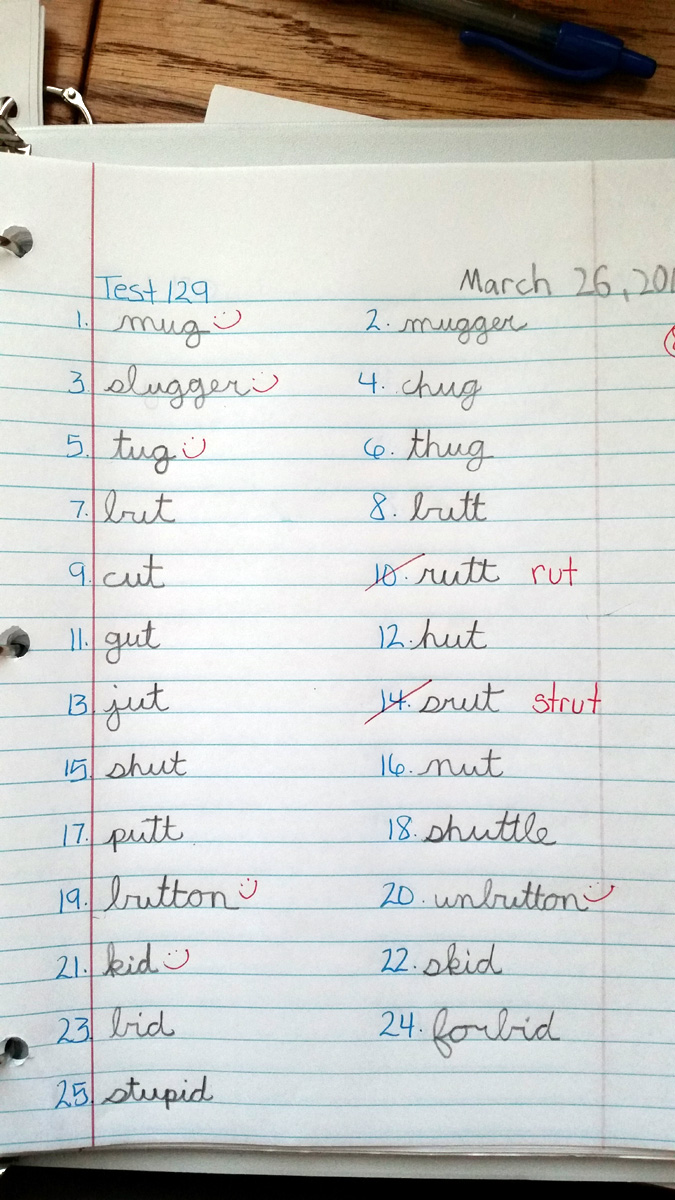 Test 129 March 26, 201
1. mug 2. mugger
3. slugger 4. chug
5. tug 6. thug
7. but 8. butt
9. cut 10. rutt rut
11. gut 12. hut
13. jut 14. srut strut
15. shut 16. nut
17. putt 18. shuttle
19. button 20. unbutton
21. kid 22. skid
23. bid 24. forbid
25. stupid